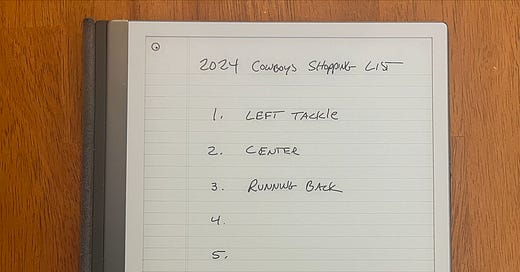 2024 Cowboys Shopping List
1. Left Tackle
2. Center
3. Running Back
4.
5.